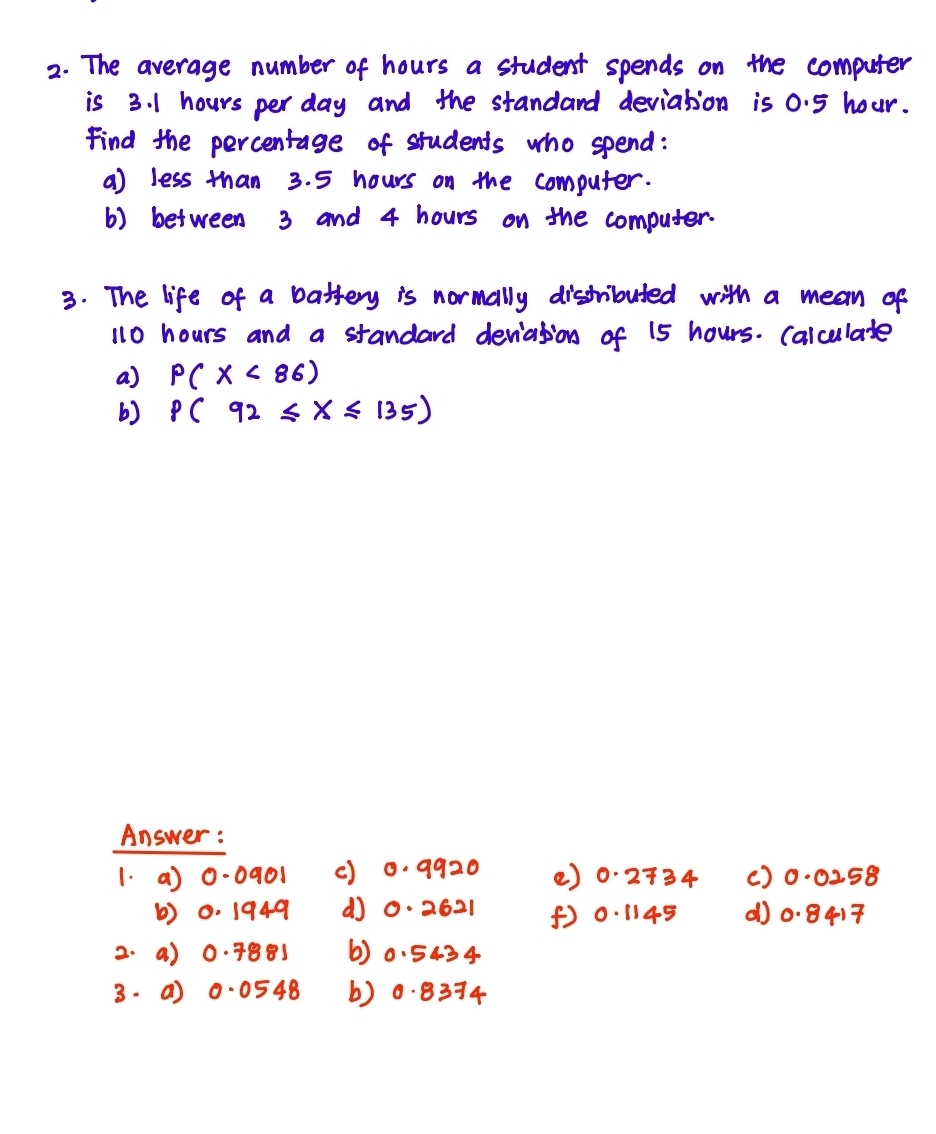 2. The average number of hours a student spends on the computer
is 3.1 hours per day and the standard deviation is 0.5 hour.
Find the percentage of students who spend:
a) less than 3.5 hours on the computer.
b) between 3 and 4 hours on the computer.
3. The life of a battery is normally distributed with a mean of
110 hours and a standard deviation of 15 hours. Calculate
a) P( X < 86)
b) P( 92 ≤ X ≤ 135)
Answer:
1. a) 0.0901 c) 0.9920 e) 0.2734 c) 0.0258
b) 0.1949 d) 0.2621 f) 0.1145 d) 0.8417
2. a) 0.7881 b) 0.5434
3. a) 0.0548 b) 0.8374